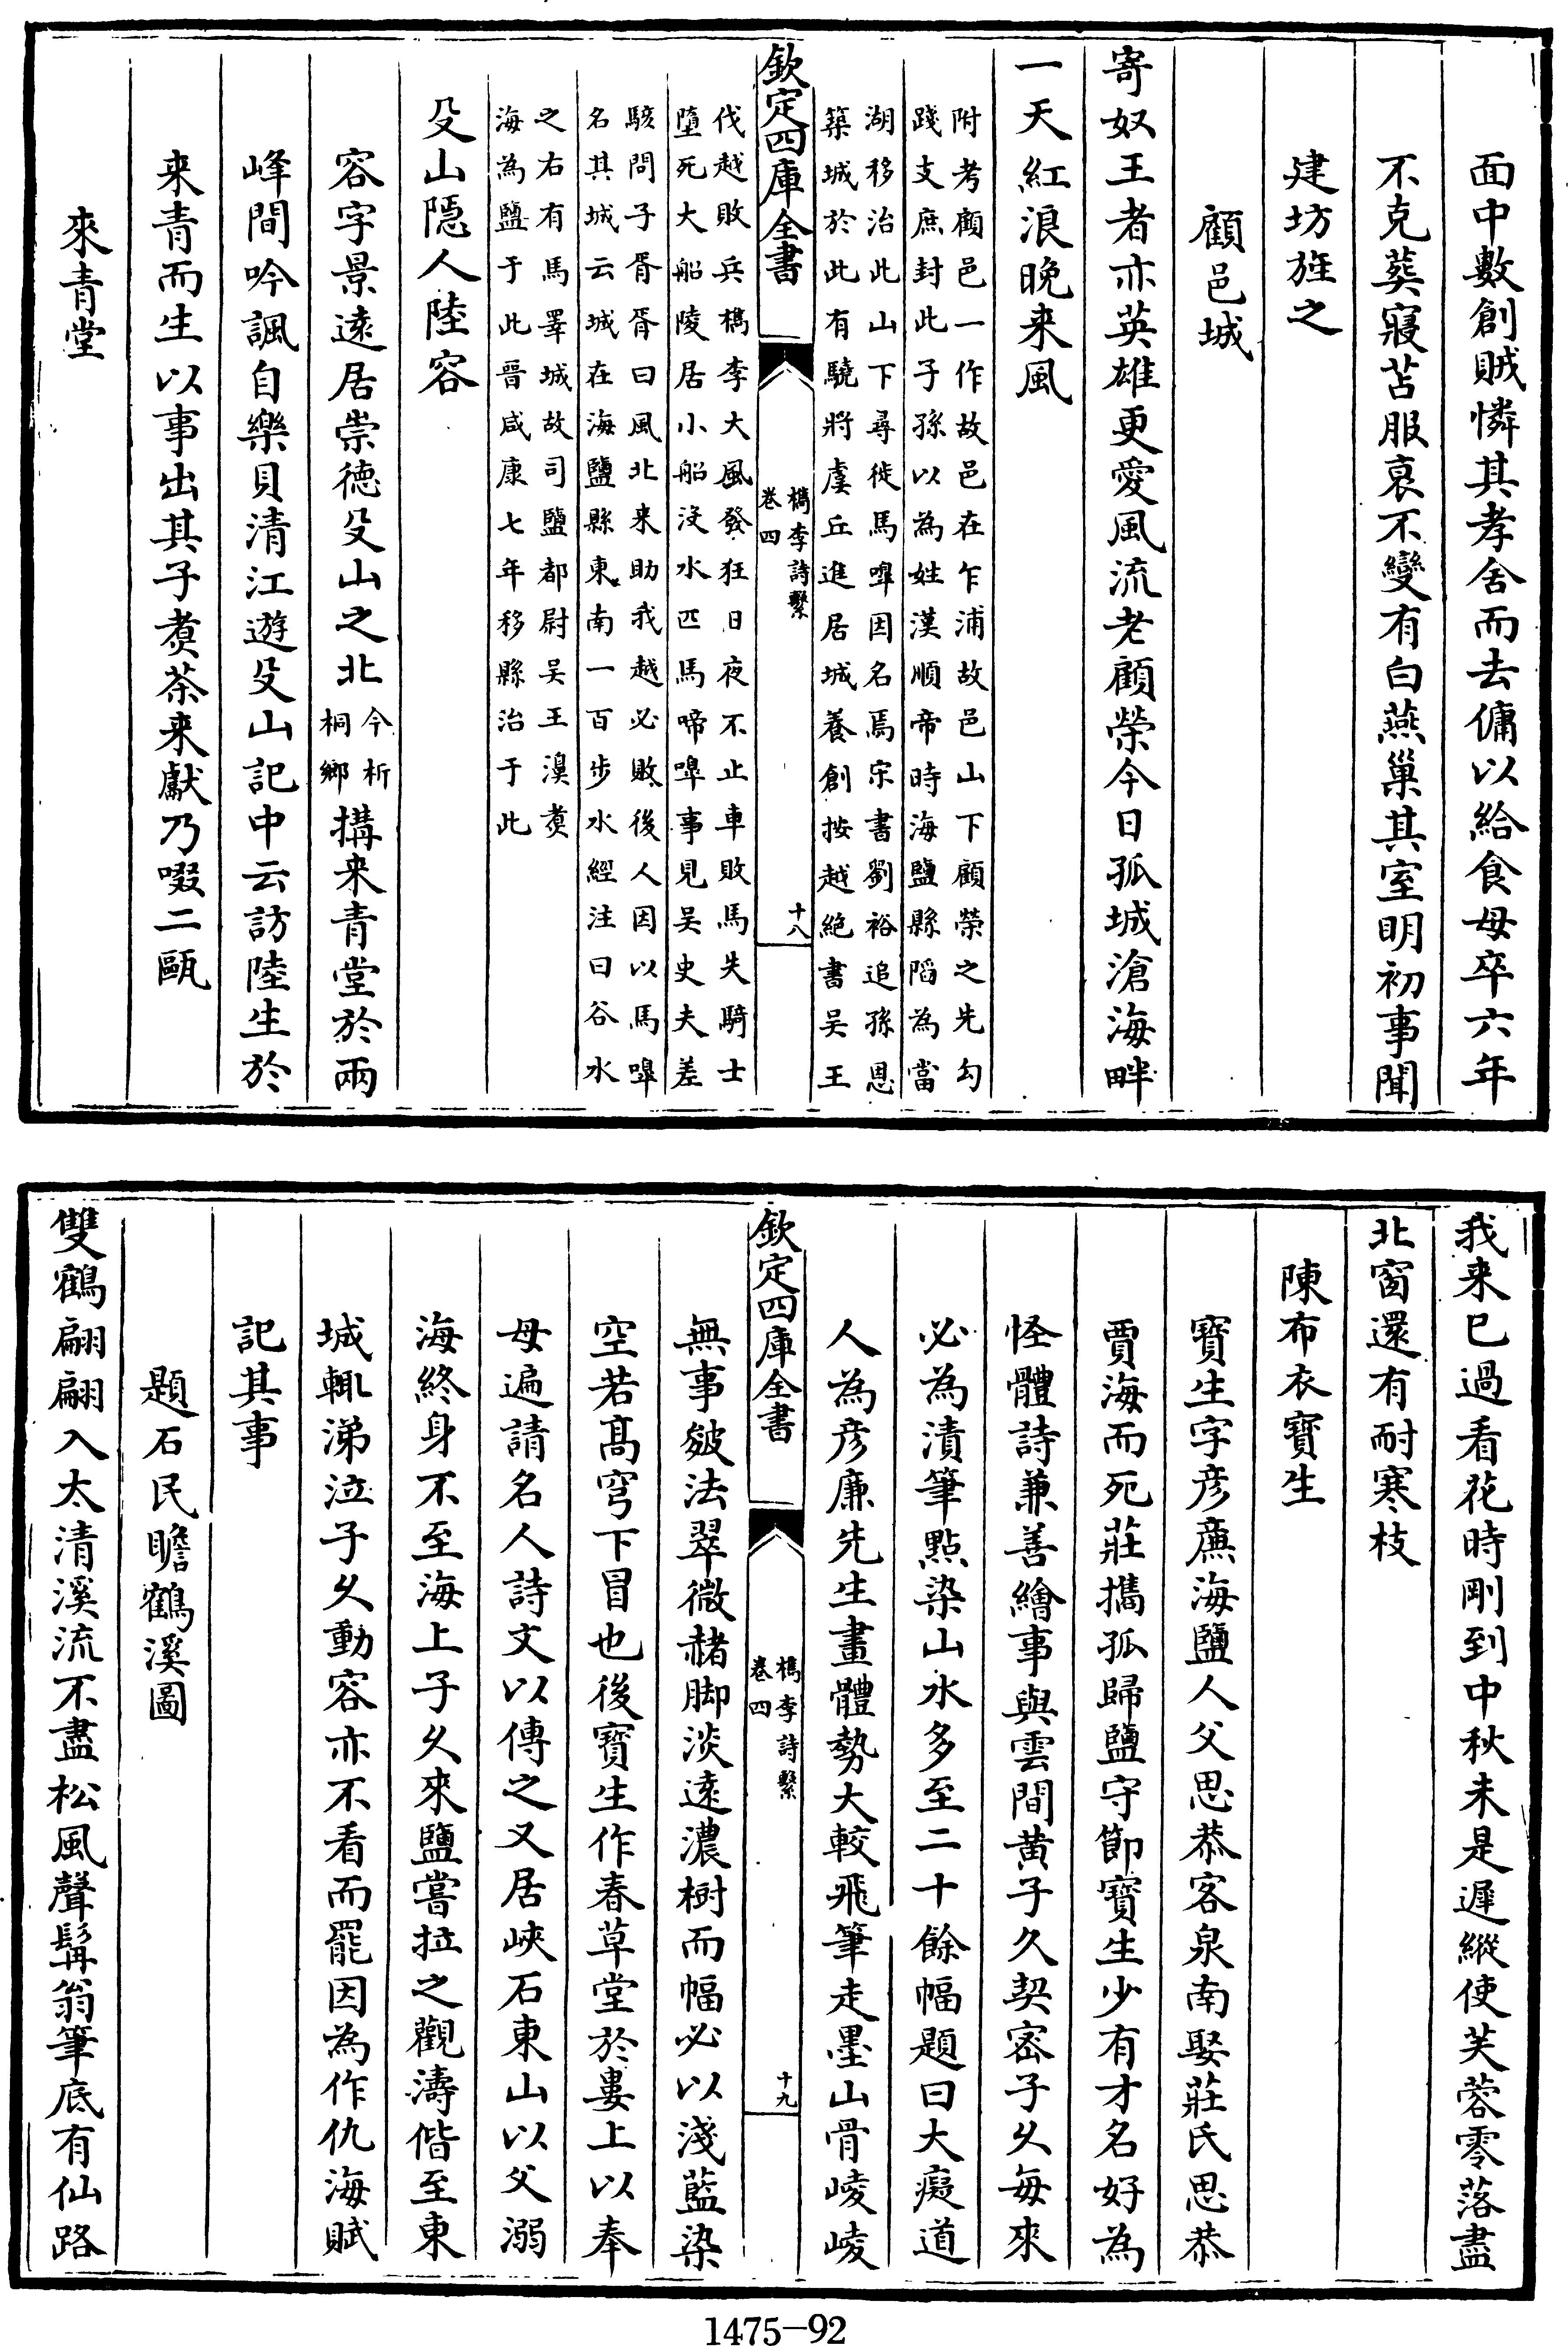 面中數創賊憐其孝舍而去傭以給食母卒六年
不克葬寢苫服衰不變有白燕巢其室明初事聞
建坊旌之
顧邑城
寄奴王者亦英雄更愛風流老顧榮今日孤城滄海畔
一天紅浪晚来風
附考顧邑一作故邑在乍浦故邑山下顧榮之先勾
踐支庶封此子孫以為姓漢順帝時海鹽縣䧟為當
湖移治此山下尋徙馬嘷因名焉宋書劉裕追孫恩
築城於此有驍將虞丘進居城養創按越絶書吳王
欽定四庫全書
檇李詩繫
卷四
十八
伐越敗兵檇李大風發狂日夜不止車敗馬失騎士
墮死大船陵居小船没水匹馬啼嘷事見吳史夫差
駭問子胥胥曰風北来助我越必敗後人因以馬嘷
名其城云城在海鹽縣東南一百步水經注曰谷水
之右有馬睪城故司鹽都尉吳王濞煑
海為鹽于此晉咸康七年移縣治于此
殳山隱人陸容
容字景逺居崇德殳山之北今析桐鄉搆来青堂於兩
峰間吟諷自樂貝清江遊殳山記中云訪陸生於
来青而生以事出其子煑茶来獻乃啜二甌
來青堂
我来已過看花時剛到中秋未是遲縱使芙蓉零落盡
北窗還有耐寒枝
陳布衣寶生
寶生字彦廉海鹽人父思恭客泉南娶莊氏思恭
賈海而死莊攜孤歸鹽守節寶生少有才名好為
怪體詩兼善繪事與雲間黄子久契宻子久每來
必為漬筆點染山水多至二十餘幅題曰大癡道
人為彦廉先生畫體勢大較飛筆走墨山骨崚崚
欽定四庫全書
檇李詩繫
卷四
十九
無事皴法翠微赭脚淡逺濃樹而幅必以淺藍染
空若髙穹下冒也後寶生作春草堂於婁上以奉
母遍請名人詩文以傳之又居峽石東山以父溺
海終身不至海上子久來鹽嘗拉之觀濤偕至東
城輒涕泣子久動容亦不看而罷因為作仇海賦
記其事
題石民瞻鶴溪圖
雙鶴翩翩入太清溪流不盡松風聲髯翁筆底有仙路
1475-92